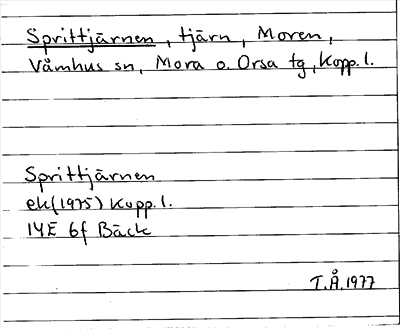 Sprittjärnen, tjärn, Moren,
Våmhus sn, Mora o. Orsa tg, Kopp. l.
Sprittjärnen
ek(1975) Kopp. l.
14E 6f Bäck
T.Å. 1977